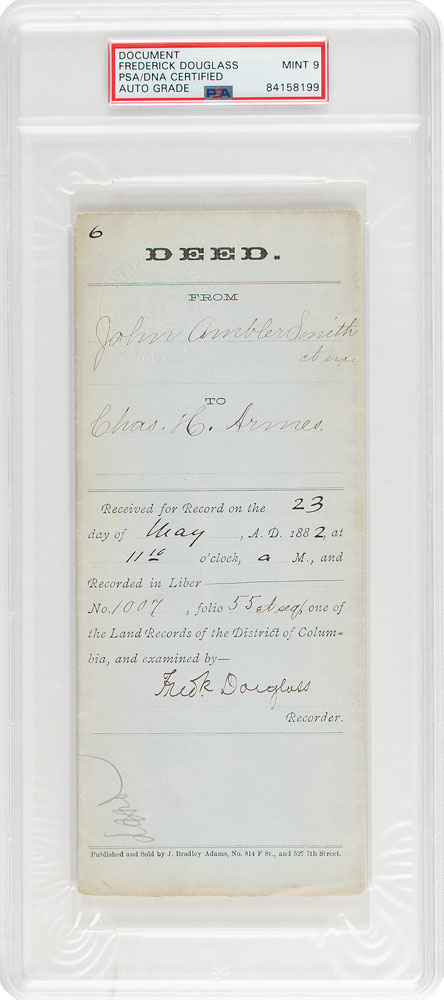 DOCUMENT
FREDERICK DOUGLASS MINT 9
PSA/DNA CERTIFIED
AUTO GRADE PSA 84158199
6
DEED.
FROM
John Ambler Smith
et ux.
TO
Chas. H. Armes.
Received for Record on the 23
day of May, A. D. 1882, at
11 10 o'clock, a M., and
Recorded in Liber
No. 1007, folio 55 et seq, one of
the Land Records of the District of Colum-
bia, and examined by—
Fredk Douglass
Recorder.
Published and Sold by J. Bradley Adams, No. 814 F St., and 527 7th Street.